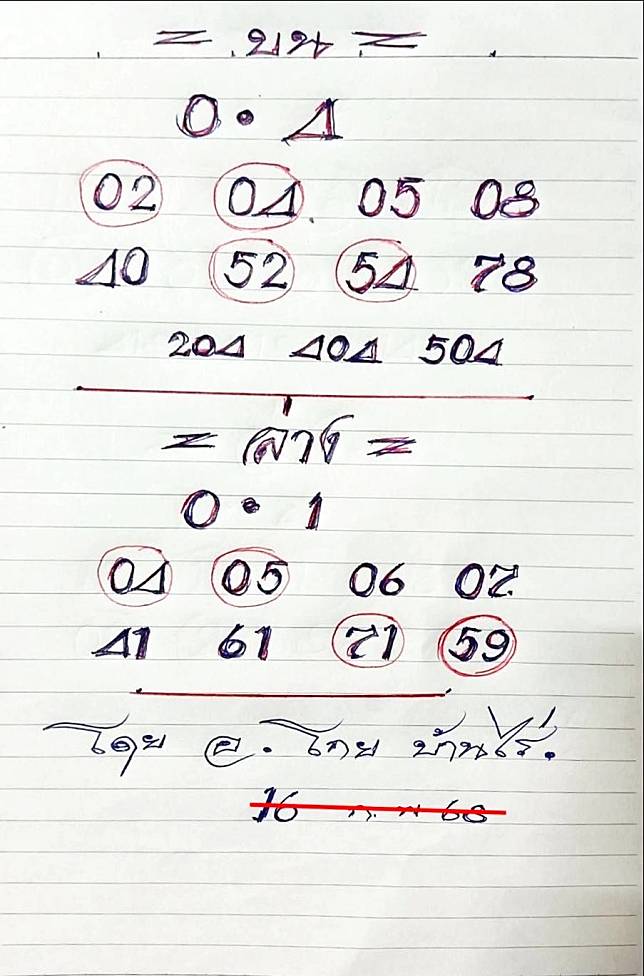 = บน =
0 • 4
02 04 05 08
40 52 54 78
204 404 504
= ล่าง =
0 • 1
04 05 06 07
41 61 71 59
โดย อ. โกย บ้านไร่.
16 ก.พ 68